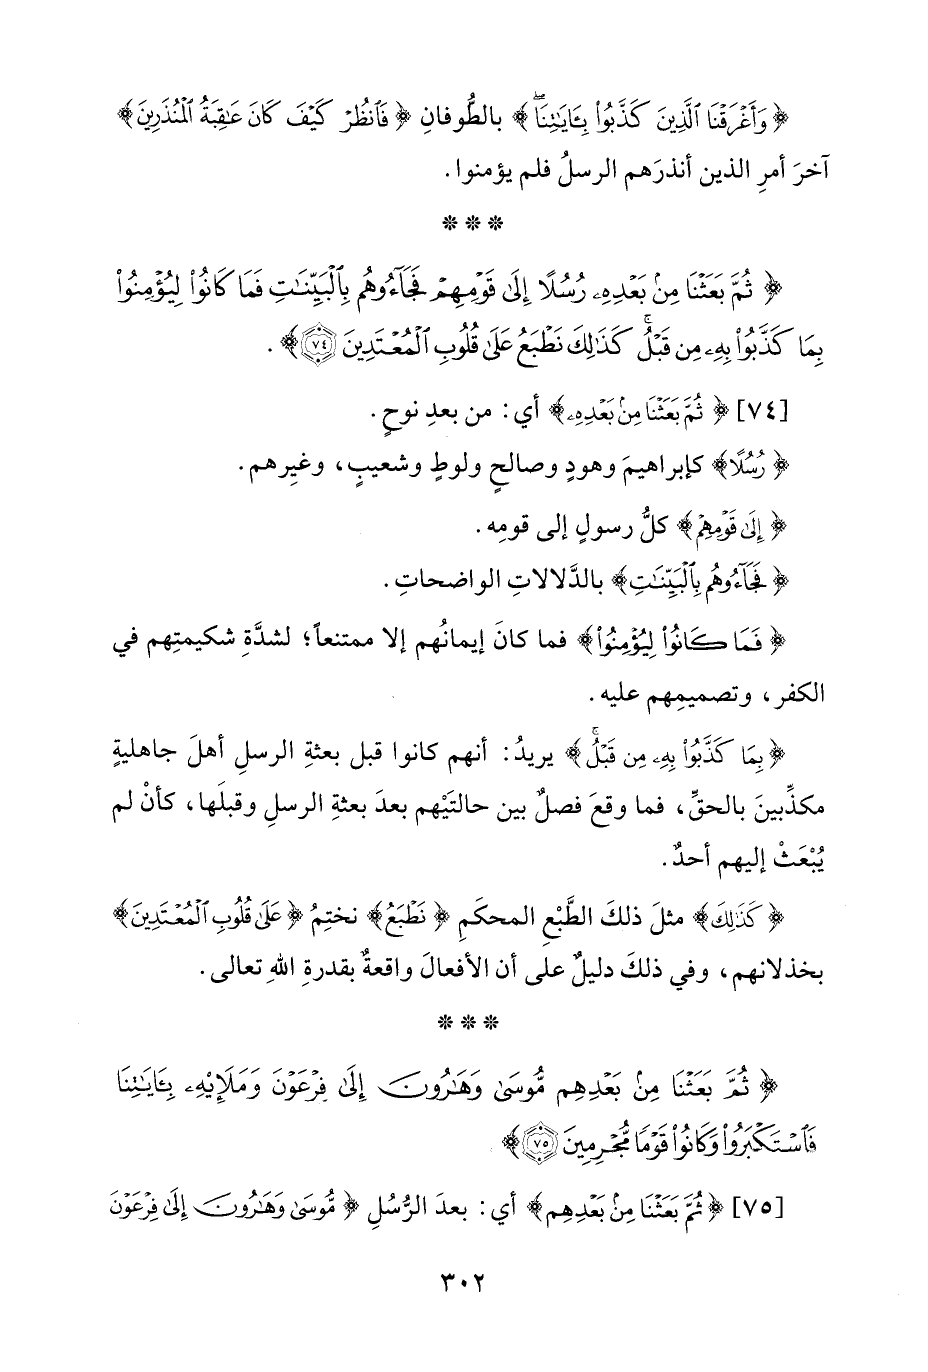 ﴿ وَأَغْرَقْنَا ٱلَّذِينَ كَذَّبُوا۟ بِـَٔايَـٰتِنَا ۖ ﴾ بالطُّوفانِ ﴿ فَٱنظُرْ كَيْفَ كَانَ عَـٰقِبَةُ ٱلْمُنذَرِينَ ﴾
آخرَ أمرِ الذين أنذرَهم الرسلُ فلم يؤمنوا.
* * *
﴿ ثُمَّ بَعَثْنَا مِنۢ بَعْدِهِۦ رُسُلًا إِلَىٰ قَوْمِهِمْ فَجَآءُوهُم بِٱلْبَيِّنَـٰتِ فَمَا كَانُوا۟ لِيُؤْمِنُوا۟
بِمَا كَذَّبُوا۟ بِهِۦ مِن قَبْلُ ۚ كَذَٰلِكَ نَطْبَعُ عَلَىٰ قُلُوبِ ٱلْمُعْتَدِينَ ٧٤ ﴾ .
[٧٤] ﴿ ثُمَّ بَعَثْنَا مِنۢ بَعْدِهِۦ ﴾ أي: من بعدِ نوحٍ.
﴿ رُسُلًا ﴾ كإبراهيمَ وهودٍ وصالحٍ ولوطٍ وشعيبٍ، وغيرِهم.
﴿ إِلَىٰ قَوْمِهِمْ ﴾ كلُّ رسولٍ إلى قومِه.
﴿ فَجَآءُوهُم بِٱلْبَيِّنَـٰتِ ﴾ بالدَّلالاتِ الواضحاتِ.
﴿ فَمَا كَانُوا۟ لِيُؤْمِنُوا۟ ﴾ فما كانَ إيمانُهم إلا ممتنعاً؛ لشدَّةِ شكيمتِهم في
الكفر، وتصميمِهم عليه.
﴿ بِمَا كَذَّبُوا۟ بِهِۦ مِن قَبْلُ ۚ ﴾ يريدُ: أنهم كانوا قبل بعثةِ الرسلِ أهلَ جاهليةٍ
مكذِّبينَ بالحقِّ، فما وقعَ فصلٌ بين حالتَيْهم بعدَ بعثةِ الرسلِ وقبلَها، كأنْ لم
يُبْعَثْ إليهم أحدٌ.
﴿ كَذَٰلِكَ ﴾ مثلَ ذلكَ الطَّبْعِ المحكَمِ ﴿ نَطْبَعُ ﴾ نختمُ ﴿ عَلَىٰ قُلُوبِ ٱلْمُعْتَدِينَ ﴾
بخذلانهم، وفي ذلكَ دليلٌ على أن الأفعالَ واقعةٌ بقدرةِ اللهِ تعالى.
* * *
﴿ ثُمَّ بَعَثْنَا مِنۢ بَعْدِهِم مُّوسَىٰ وَهَـٰرُونَ إِلَىٰ فِرْعَوْنَ وَمَلَإِي۟هِۦ بِـَٔايَـٰتِنَا
فَٱسْتَكْبَرُوا۟ وَكَانُوا۟ قَوْمًا مُّجْرِمِينَ ٧٥ ﴾
[٧٥] ﴿ ثُمَّ بَعَثْنَا مِنۢ بَعْدِهِم ﴾ أي: بعدَ الرُّسُلِ ﴿ مُّوسَىٰ وَهَـٰرُونَ إِلَىٰ فِرْعَوْنَ
٣٠٢